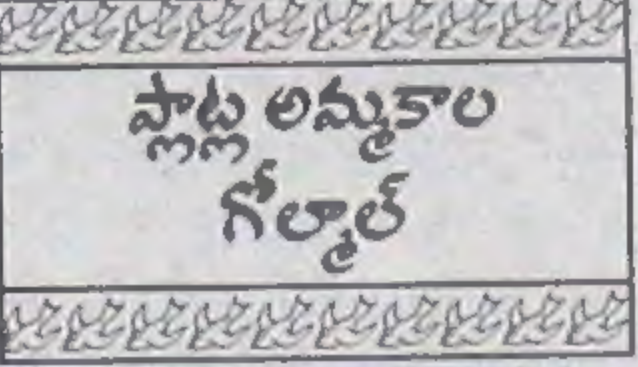 ప్లాట్ల అమ్మకాల
గోల్మాల్